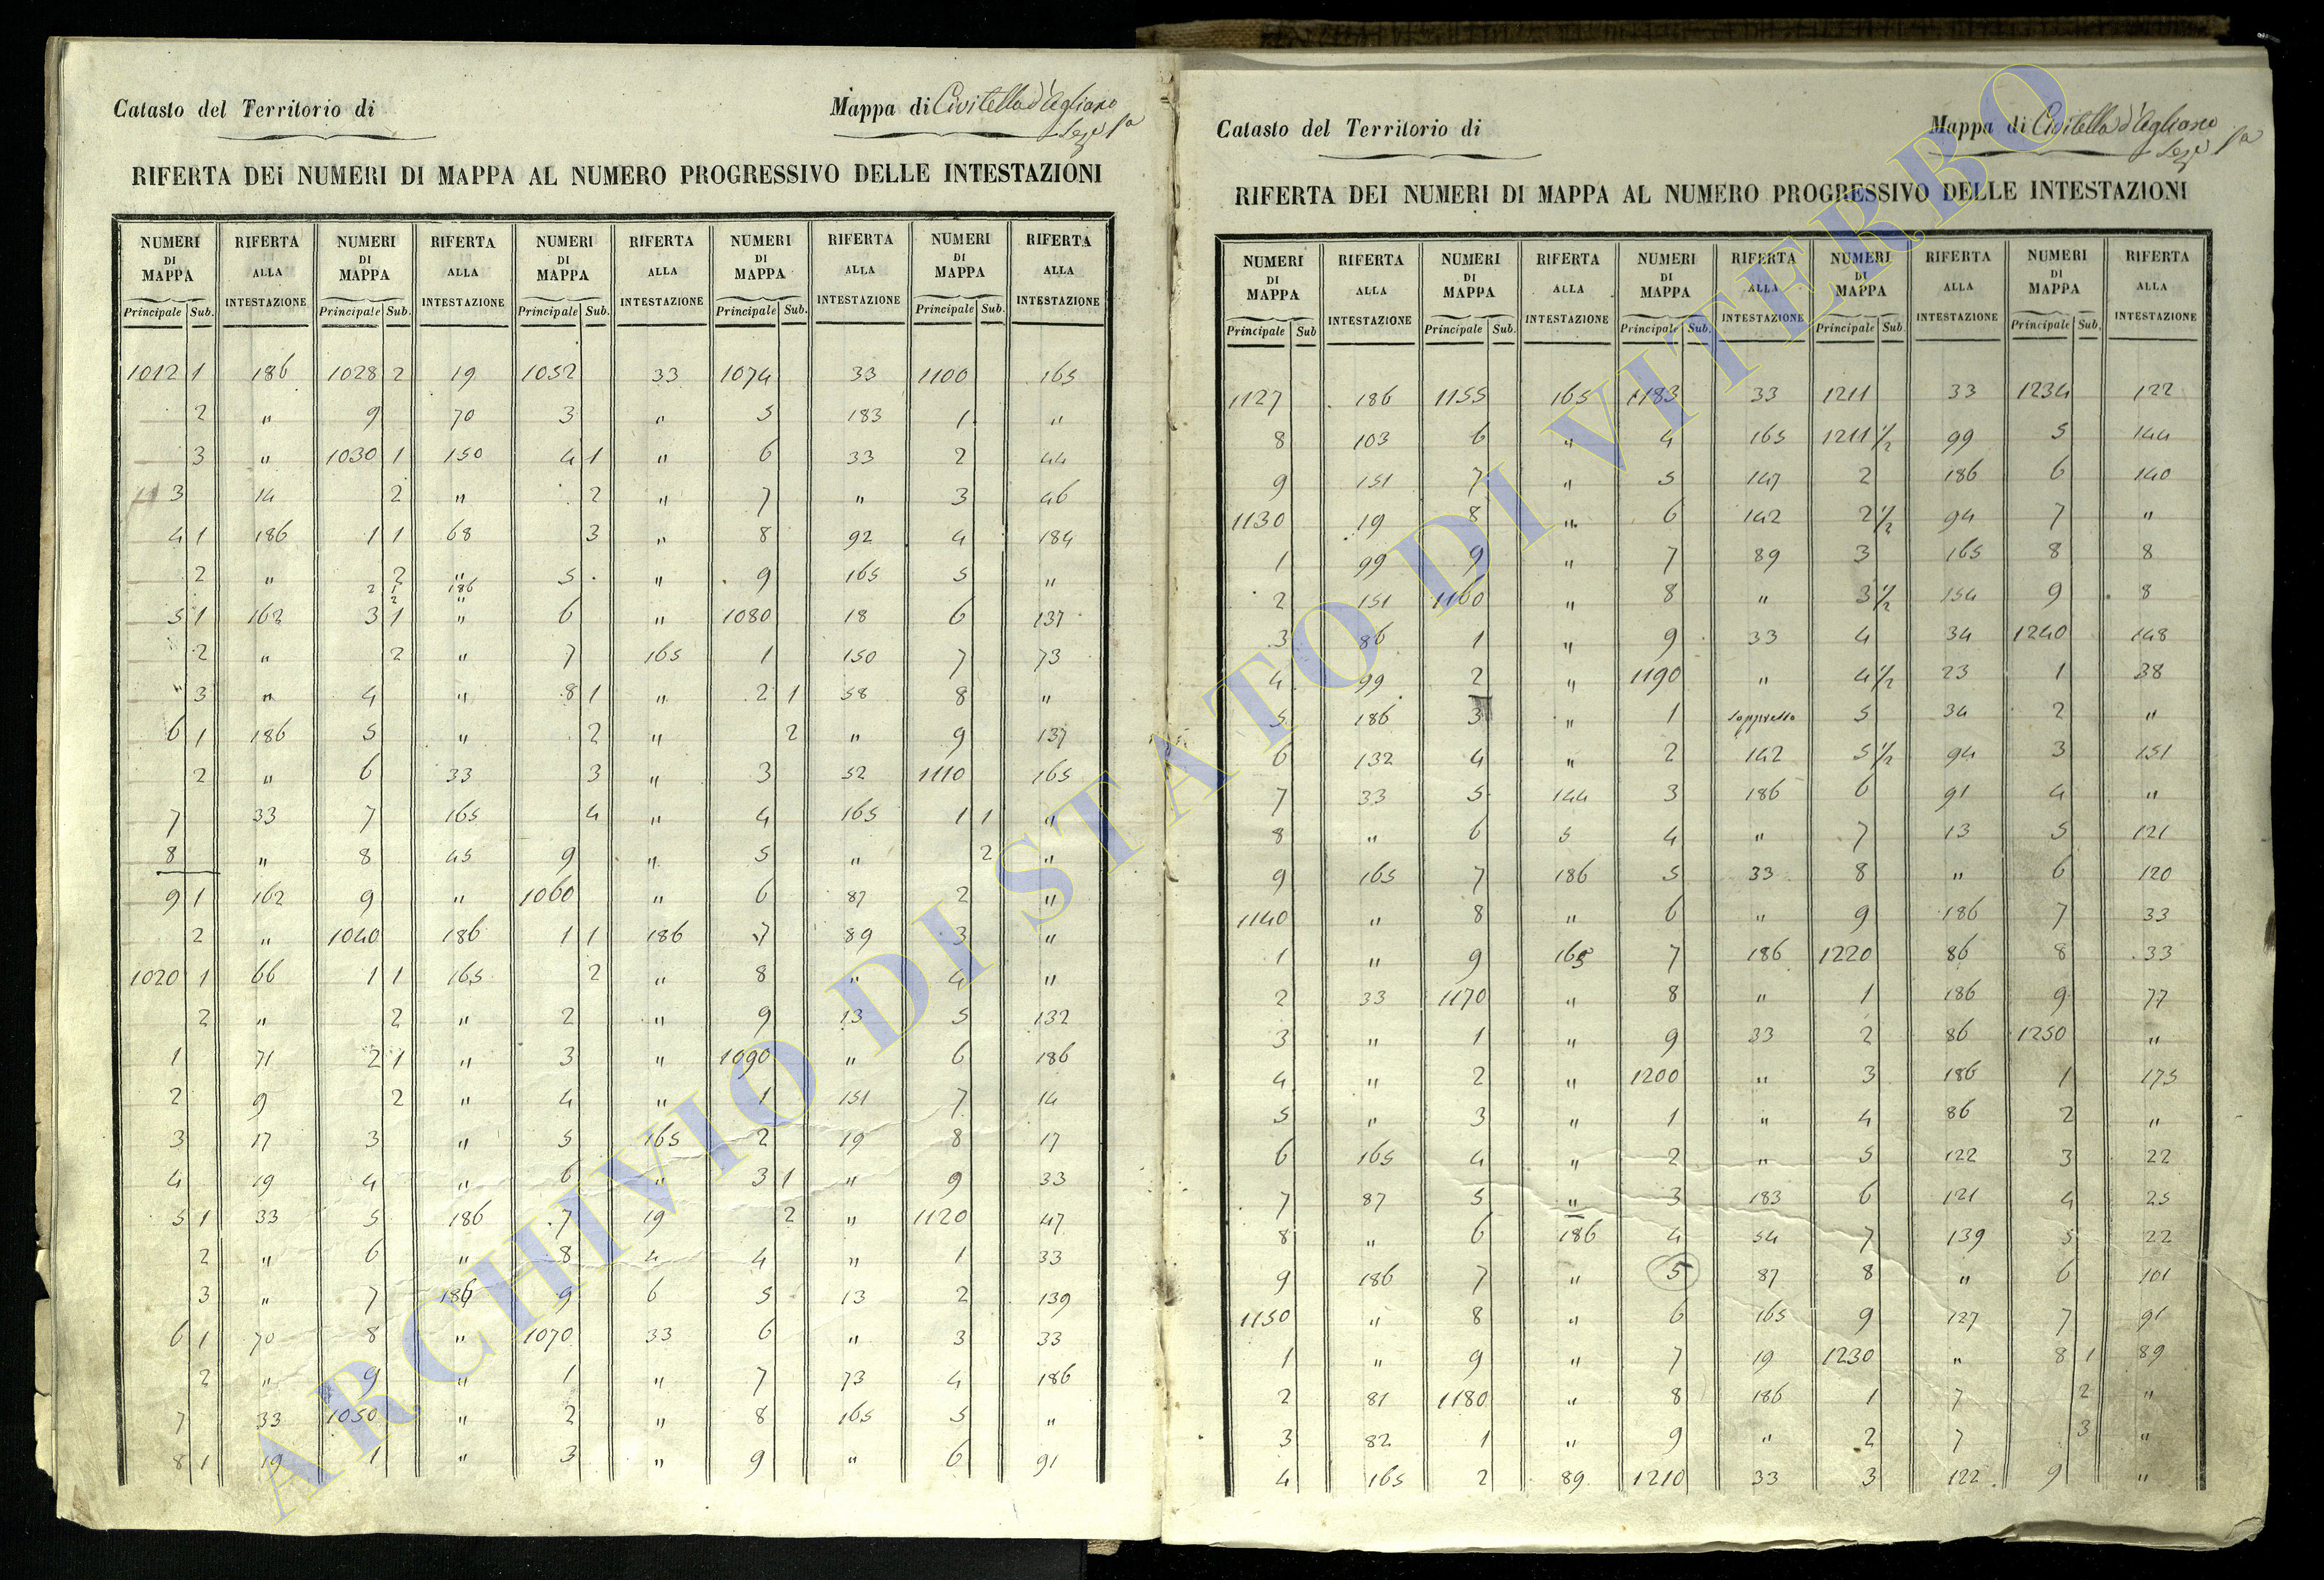 Catasto del Territorio di
Mappa di Civitella d'Agliano
Seze 1a
RIFERTA DEI NUMERI DI MAPPA AL NUMERO PROGRESSIVO DELLE INTESTAZIONI
NUMERI RIFERTA NUMERI RIFERTA NUMERI RIFERTA NUMERI RIFERTA NUMERI RIFERTA
DI ALLA DI ALLA DI ALLA DI ALLA DI ALLA
MAPPA INTESTAZIONE MAPPA INTESTAZIONE MAPPA INTESTAZIONE MAPPA INTESTAZIONE MAPPA INTESTAZIONE
Principale Sub. Principale Sub. Principale Sub. Principale Sub. Principale Sub.
1012 1 186 1028 2 19 1052 33 1074 33 1100 165
2 " 9 70 3 " 5 183 1 "
3 " 1030 1 150 4 1 " 6 33 2 44
3 14 2 " 2 " 7 " 3 46
4 1 186 1 1 68 3 " 8 92 4 184
2 " 2 " 5 " 9 165 5 "
2 1 186
2 "
5 1 162 3 1 " 6 " 1080 18 6 137
2 " 2 " 7 165 1 150 7 73
3 " 4 " 8 1 " 2 1 58 8 "
6 1 186 5 " 2 " 2 " 9 137
2 " 6 33 3 " 3 52 1110 165
7 33 7 165 4 " 4 165 1 1 "
8 " 8 45 9 " 5 " 2 "
9 1 162 9 " 1060 " 6 87 2 "
2 " 1040 186 1 1 186 7 89 3 "
1020 1 66 1 1 165 2 " 8 " 4 "
2 " 2 " 2 " 9 13 5 132
1 71 2 1 " 3 " 1090 " 6 186
2 9 2 " 4 " 1 151 7 14
3 17 3 " 5 165 2 19 8 17
4 19 4 " 6 " 3 1 " 9 33
5 1 33 5 186 7 19 2 " 1120 47
2 " 6 " 8 4 4 " 1 33
3 " 7 186 9 6 5 13 2 139
6 1 70 8 " 1070 33 6 " 3 33
2 " 9 " 1 " 7 73 4 186
7 33 1050 " 2 " 8 165 5 "
8 1 19 1 " 3 " 9 " 6 91
Catasto del Territorio di
Mappa di Civitella d'Agliano
Seze 1a
RIFERTA DEI NUMERI DI MAPPA AL NUMERO PROGRESSIVO DELLE INTESTAZIONI
NUMERI RIFERTA NUMERI RIFERTA NUMERI RIFERTA NUMERI RIFERTA NUMERI RIFERTA
DI ALLA DI ALLA DI ALLA DI ALLA DI ALLA
MAPPA INTESTAZIONE MAPPA INTESTAZIONE MAPPA INTESTAZIONE MAPPA INTESTAZIONE MAPPA INTESTAZIONE
Principale Sub Principale Sub. Principale Sub. Principale Sub. Principale Sub.
1127 186 1155 165 1183 33 1211 33 1234 122
8 103 6 " 4 165 1211 1/2 99 5 144
9 151 7 " 5 147 2 186 6 140
1130 19 8 " 6 142 2 1/2 94 7 "
1 99 9 " 7 89 3 165 8 8
2 151 1160 " 8 " 3 1/2 154 9 8
3 86 1 " 9 33 4 34 1240 148
4 99 2 " 1190 " 4 1/2 23 1 38
5 186 3 " 1 soppresso 5 34 2 "
6 132 4 " 2 142 5 1/2 94 3 151
7 33 5 144 3 186 6 91 4 "
8 " 6 5 4 " 7 13 5 121
9 165 7 186 5 33 8 " 6 120
1140 " 8 " 6 " 9 186 7 33
1 " 9 165 7 186 1220 86 8 33
2 33 1170 " 8 " 1 186 9 77
3 " 1 " 9 33 2 86 1250 "
4 " 2 " 1200 " 3 186 1 175
5 " 3 " 1 " 4 86 2 "
6 165 4 " 2 " 5 122 3 22
7 87 5 " 3 183 6 121 4 25
8 " 6 186 4 54 7 139 5 22
9 186 7 " 5 87 8 " 6 101
1150 " 8 " 6 165 9 127 7 91
1 " 9 " 7 19 1230 " 8 1 89
2 81 1180 " 8 186 1 7 2 "
3 82 1 " 9 " 2 7 3 "
4 165 2 89 1210 33 3 122 9 "
ARCHIVIO DI STATO DI VITERBO